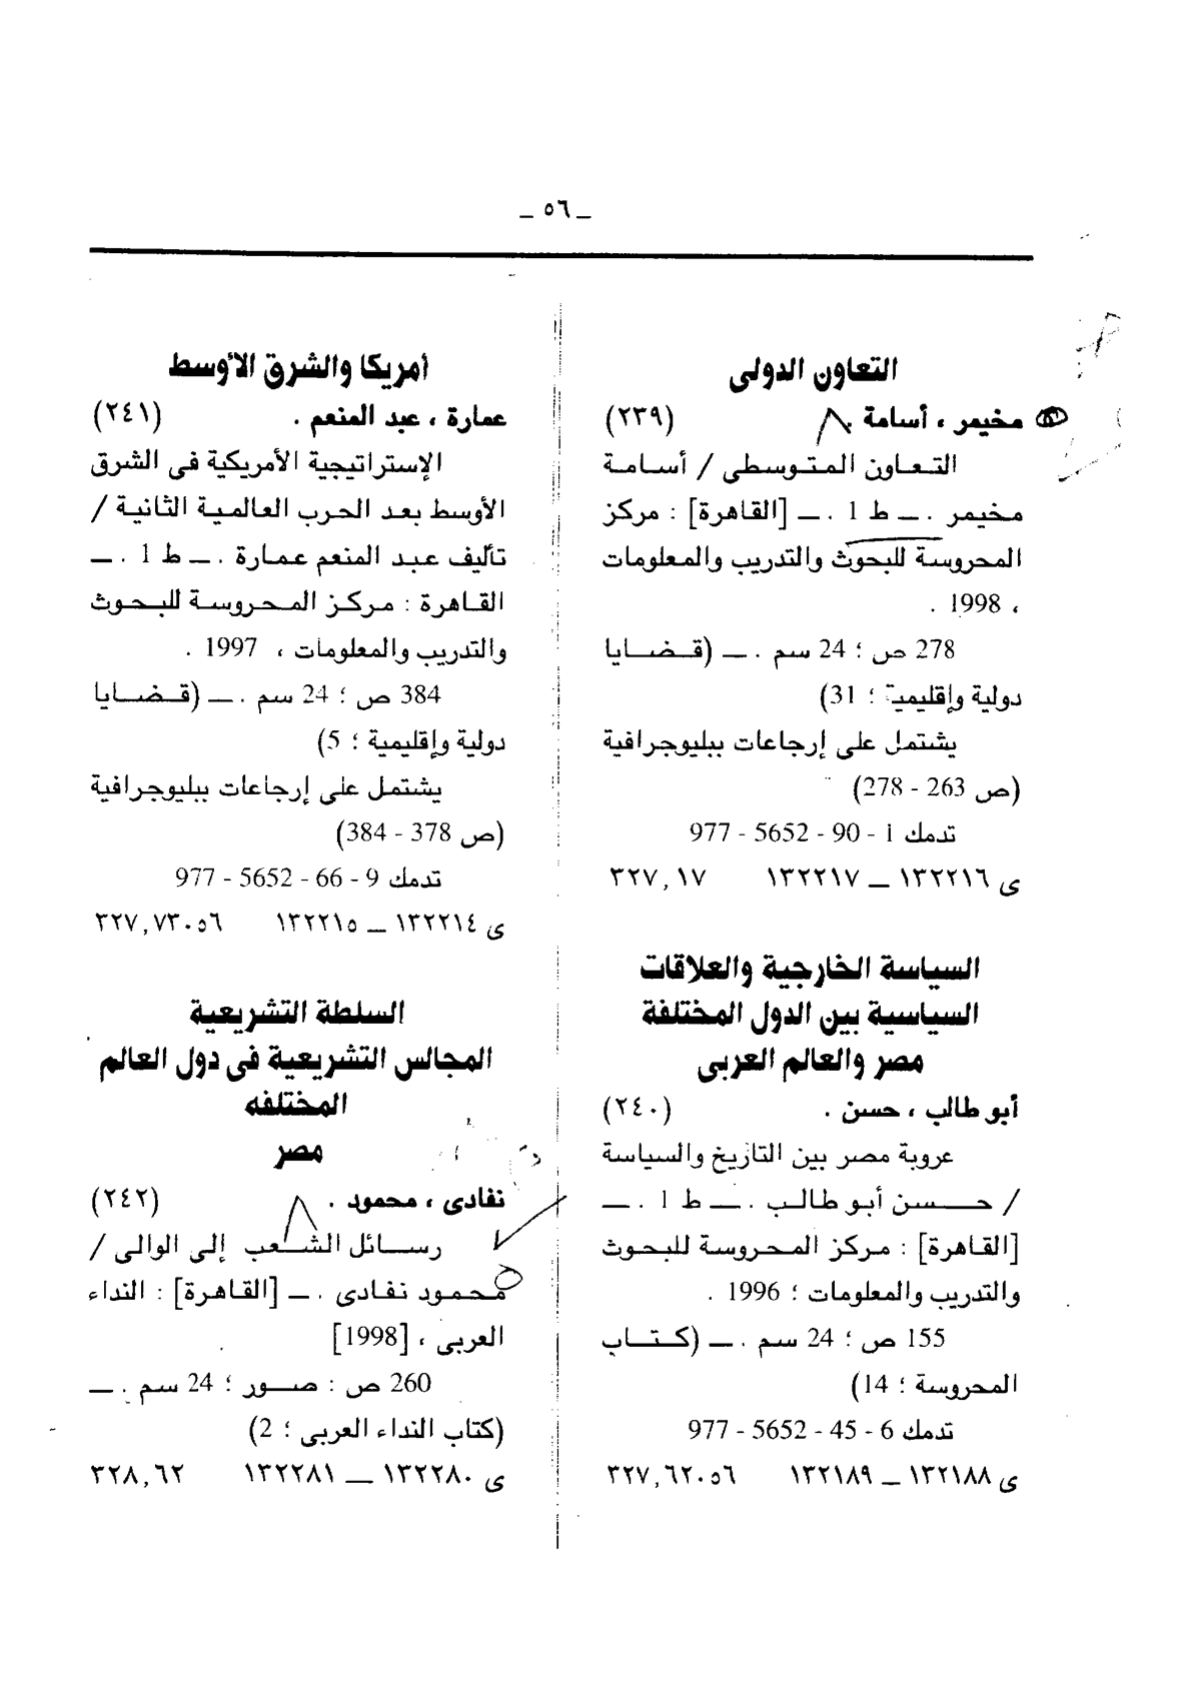 ـ ٥٦ ـ
التعاون الدولى
مخيمر ، أسامة . (٢٣٩)
التعاون المتوسطى / أسامة
مخيمر . ـ ط 1 . ـ [القاهرة] : مركز
المحروسة للبحوث والتدريب والمعلومات
، 1998 .
278 ص ؛ 24 سم . ـ (قضايا
دولية وإقليمية ؛ 31)
يشتمل على إرجاعات ببليوجرافية
(ص 263 - 278)
تدمك 1 - 90 - 5652 - 977
ى ١٣٢٢١٦ ـ ١٣٢٢١٧ ٣٢٧,١٧
السياسة الخارجية والعلاقات
السياسية بين الدول المختلفة
مصر والعالم العربى
أبو طالب ، حسن . (٢٤٠)
عروبة مصر بين التاريخ والسياسة
/ حسن أبو طالب . ـ ط 1 . ـ
[القاهرة] : مركز المحروسة للبحوث
والتدريب والمعلومات ؛ 1996 .
155 ص ؛ 24 سم . ـ (كتاب
المحروسة ؛ 14)
تدمك 6 - 45 - 5652 - 977
ى ١٣٢١٨٨ ـ ١٣٢١٨٩ ٣٢٧,٦٢٠٥٦
أمريكا والشرق الأوسط
عمارة ، عبد المنعم . (٢٤١)
الإستراتيجية الأمريكية فى الشرق
الأوسط بعد الحرب العالمية الثانية /
تأليف عبد المنعم عمارة . ـ ط 1 . ـ
القاهرة : مركز المحروسة للبحوث
والتدريب والمعلومات ، 1997 .
384 ص ؛ 24 سم . ـ (قضايا
دولية وإقليمية ؛ 5)
يشتمل على إرجاعات ببليوجرافية
(ص 378 - 384)
تدمك 9 - 66 - 5652 - 977
ى ١٣٢٢١٤ ـ ١٣٢٢١٥ ٣٢٧,٧٣٠٥٦
السلطة التشريعية
المجالس التشريعية فى دول العالم
المختلفه
مصر
نفادى ، محمود . (٢٤٢)
رسائل الشعب إلى الوالى /
محمود نفادى . ـ [القاهرة] : النداء
العربى ، [1998]
260 ص : صور ؛ 24 سم . ـ
(كتاب النداء العربى ؛ 2)
ى ١٣٢٢٨٠ ـ ١٣٢٢٨١ ٣٢٨,٦٢